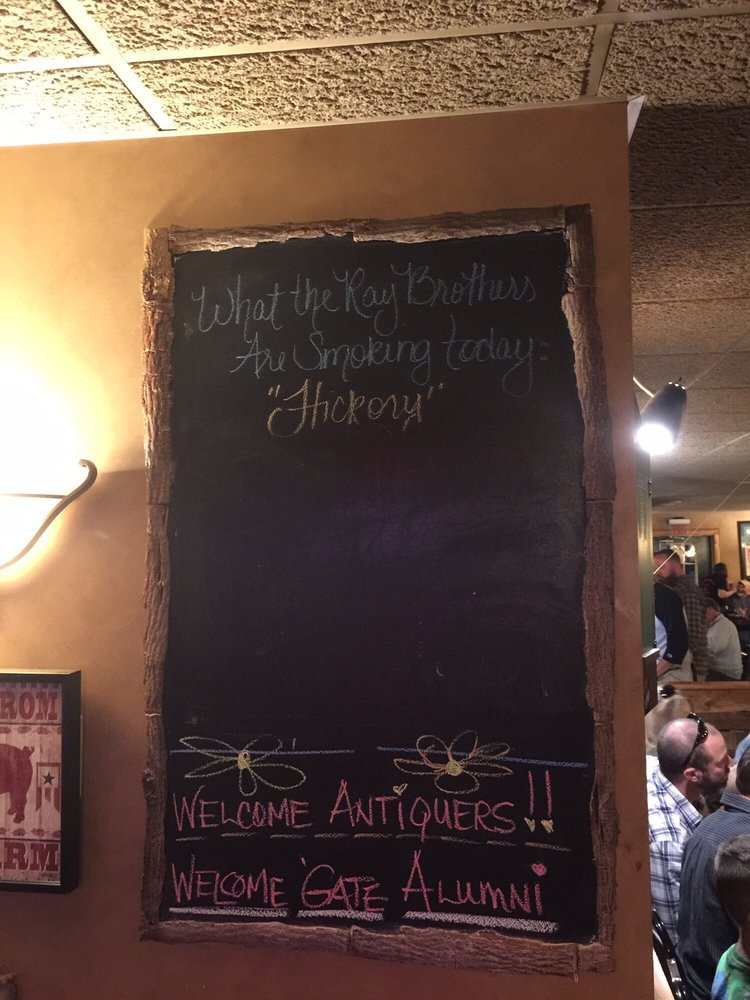 What the Ray Brothers
Are Smoking today:
"Hickory"
WELCOME ANTIQUERS!!
WELCOME 'GATE ALUMNI
ROM
ARM